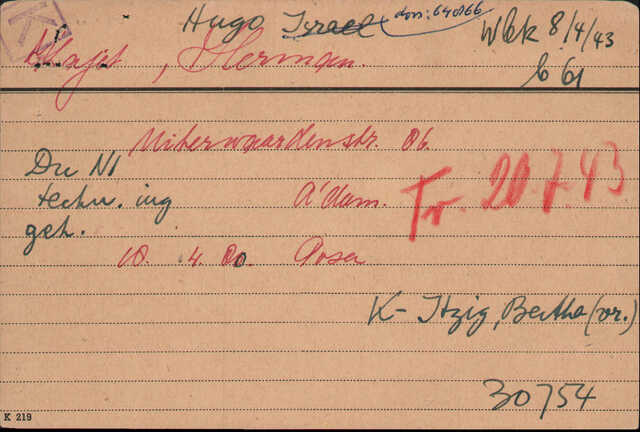 K
Hugo Israel
dos: 640166
Wbk 8/4/43
b 61
Klajet, Herman.
Uiterwaardenstr. 86
Du NI
techn. ing
geh.
A'dam.
Tr. 20.7.43
18. 4. 80. Posen
K- Itzig, Bertha (vr.)
30754
K 219